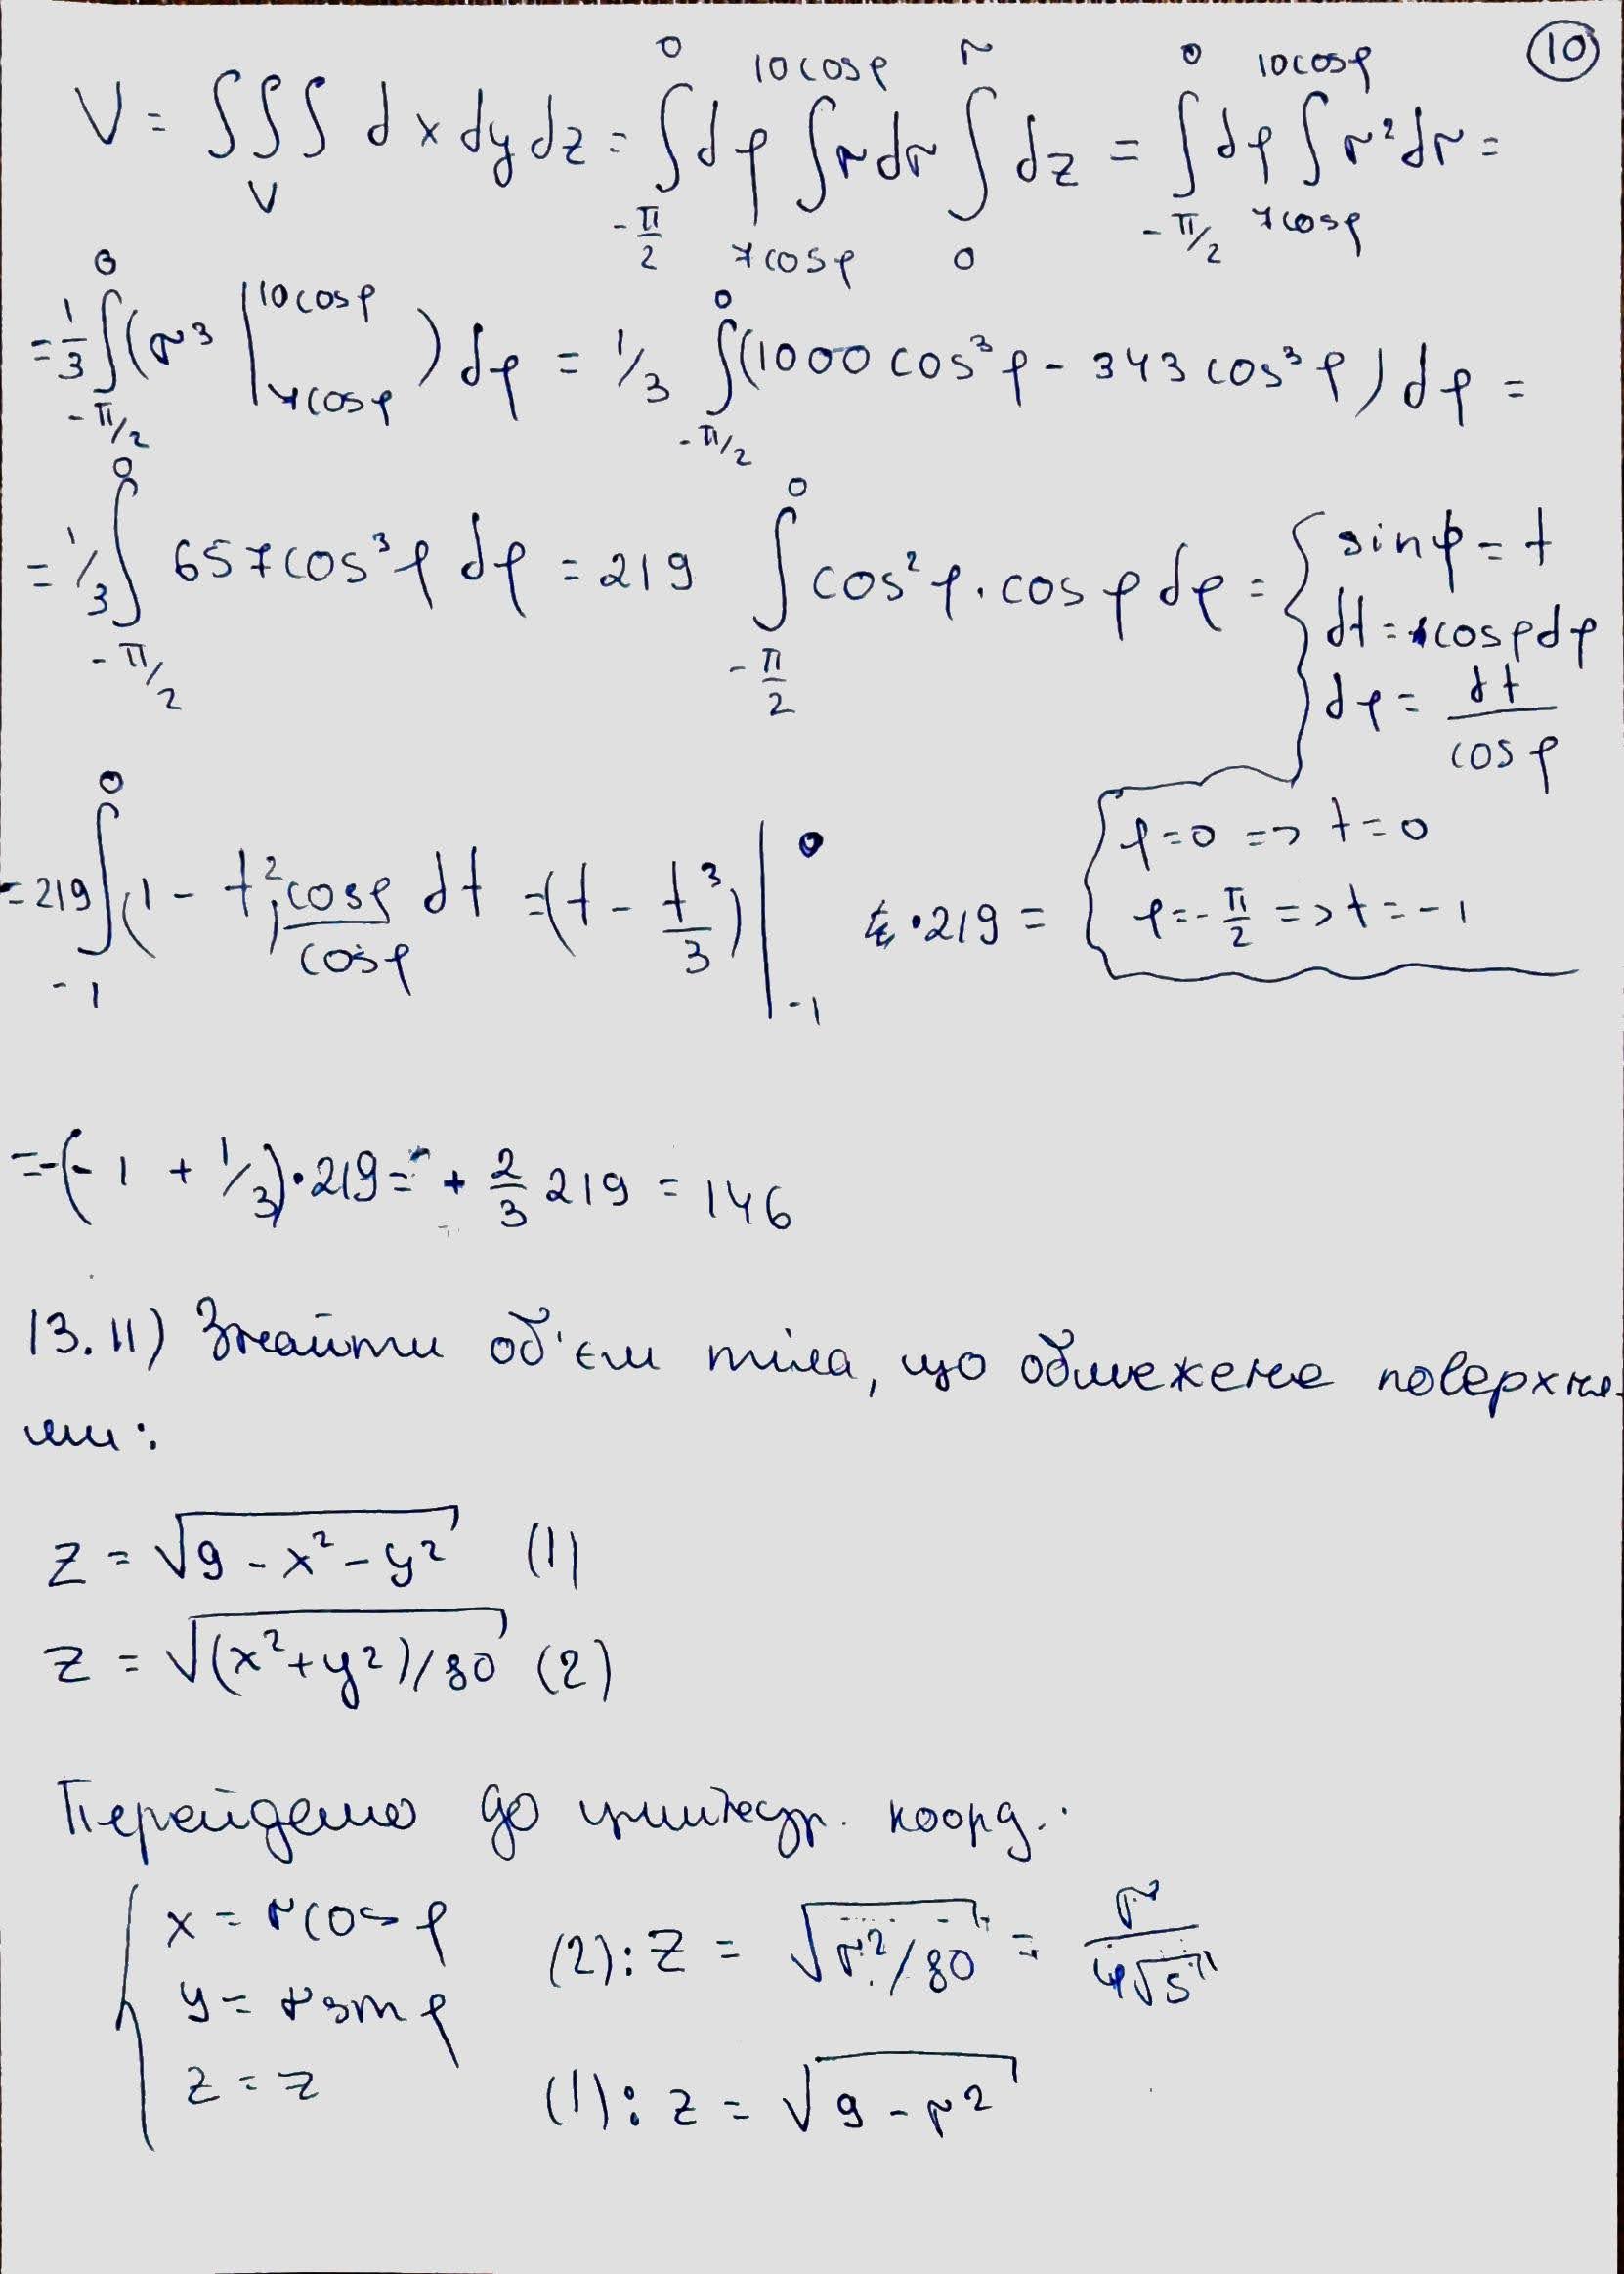 10
V = ∫∫∫_V dx dy dz = ∫_{-π/2}^{0} dφ ∫_{7cosφ}^{10cosφ} r dr ∫_{0}^{r} dz = ∫_{-π/2}^{0} dφ ∫_{7cosφ}^{10cosφ} r² dr =
= 1/3 ∫_{-π/2}^{0} (r³ |_{7cosφ}^{10cosφ}) dφ = 1/3 ∫_{-π/2}^{0} (1000 cos³φ - 343 cos³φ) dφ =
= 1/3 ∫_{-π/2}^{0} 657 cos³φ dφ = 219 ∫_{-π/2}^{0} cos²φ · cosφ dφ = { sinφ = t
dt = cosφ dφ
dφ = dt/cosφ
φ = 0 => t = 0
φ = -π/2 => t = -1
= 219 ∫_{-1}^{0} (1 - t²) cosφ/cosφ dt = (t - t³/3) |_{-1}^{0} · 219 =
= -(-1 + 1/3) · 219 = + 2/3 219 = 146
13.11) Знайти об'єм тіла, що обмежене поверхня-
ми:
z = √(9 - x² - y²) (1)
z = √((x² + y²)/80) (2)
Перейдемо до циліндр. коорд.
{ x = r cosφ
y = r sinφ
z = z
(2): z = √(r²/80) = r/(4√5)
(1): z = √(9 - r²)